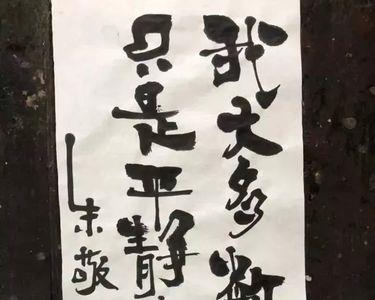 我大多数
只是平静
朱敬